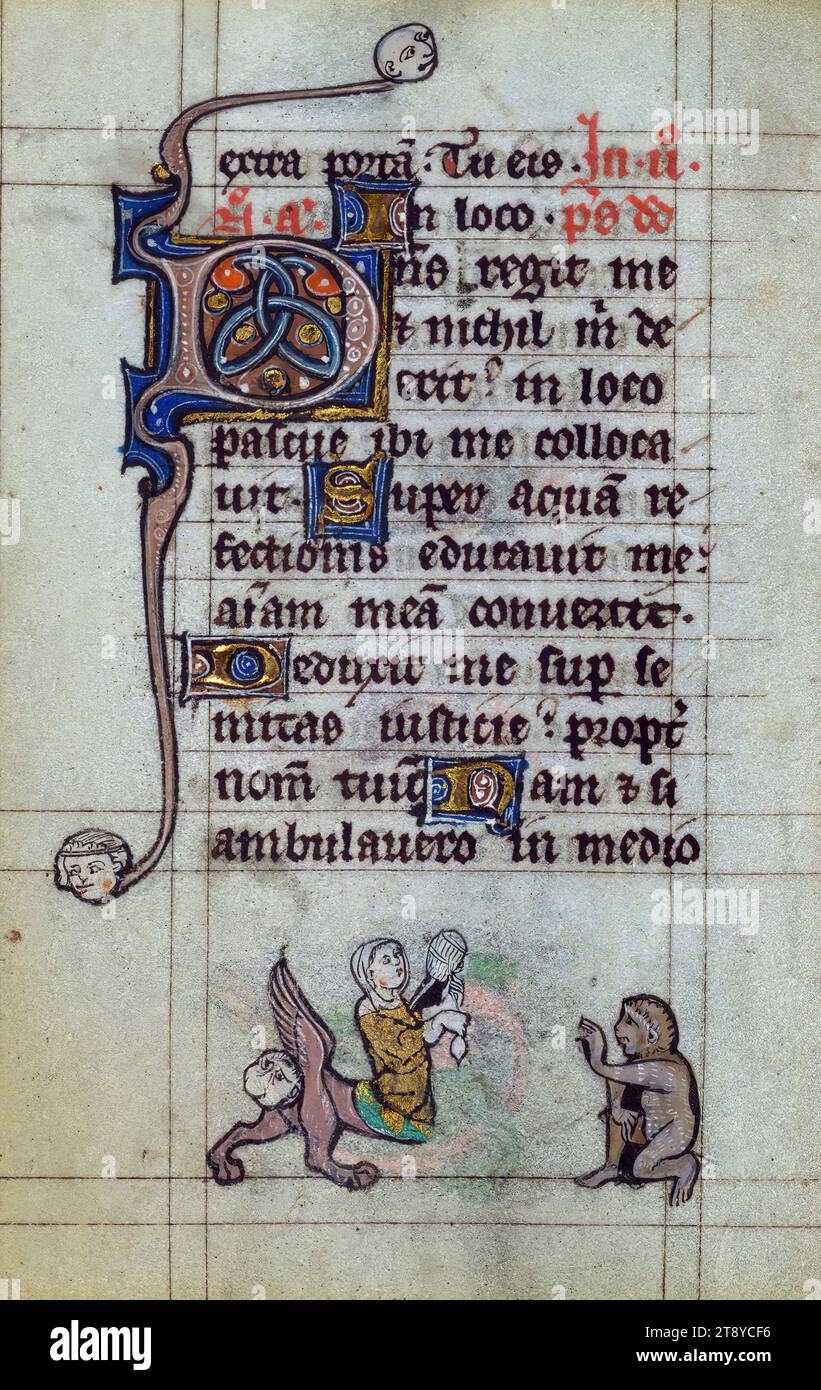 extra portā· Tu eis· In .ii°.
n°. aª. In loco· p̄s dd
Dn̄s regit me
⁊ nichil m̄ de
erit? in loco
pascue ibi me colloca
uit· Super aquā re
fectionis educauit me:
aīam meā conuertit·
Deduxit me sup se
mitas iusticie? propt̄
nom̄ tuū Nam ⁊ si
ambulauero in medio
alamy
alamy
Image ID: 2T8YCF6
www.alamy.com